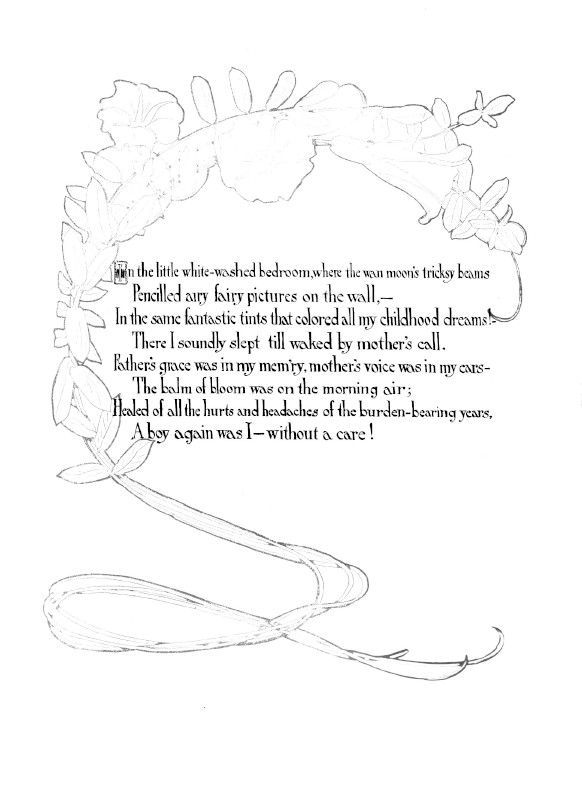 In the little white-washed bedroom, where the wan moon's tricksy beams
Pencilled airy fairy pictures on the wall,—
In the same fantastic tints that colored all my childhood dreams!—
There I soundly slept till waked by mother's call.
Father's grace was in my mem'ry, mother's voice was in my ears—
The balm of bloom was on the morning air;
Healed of all the hurts and headaches of the burden-bearing years,
A boy again was I—without a care!